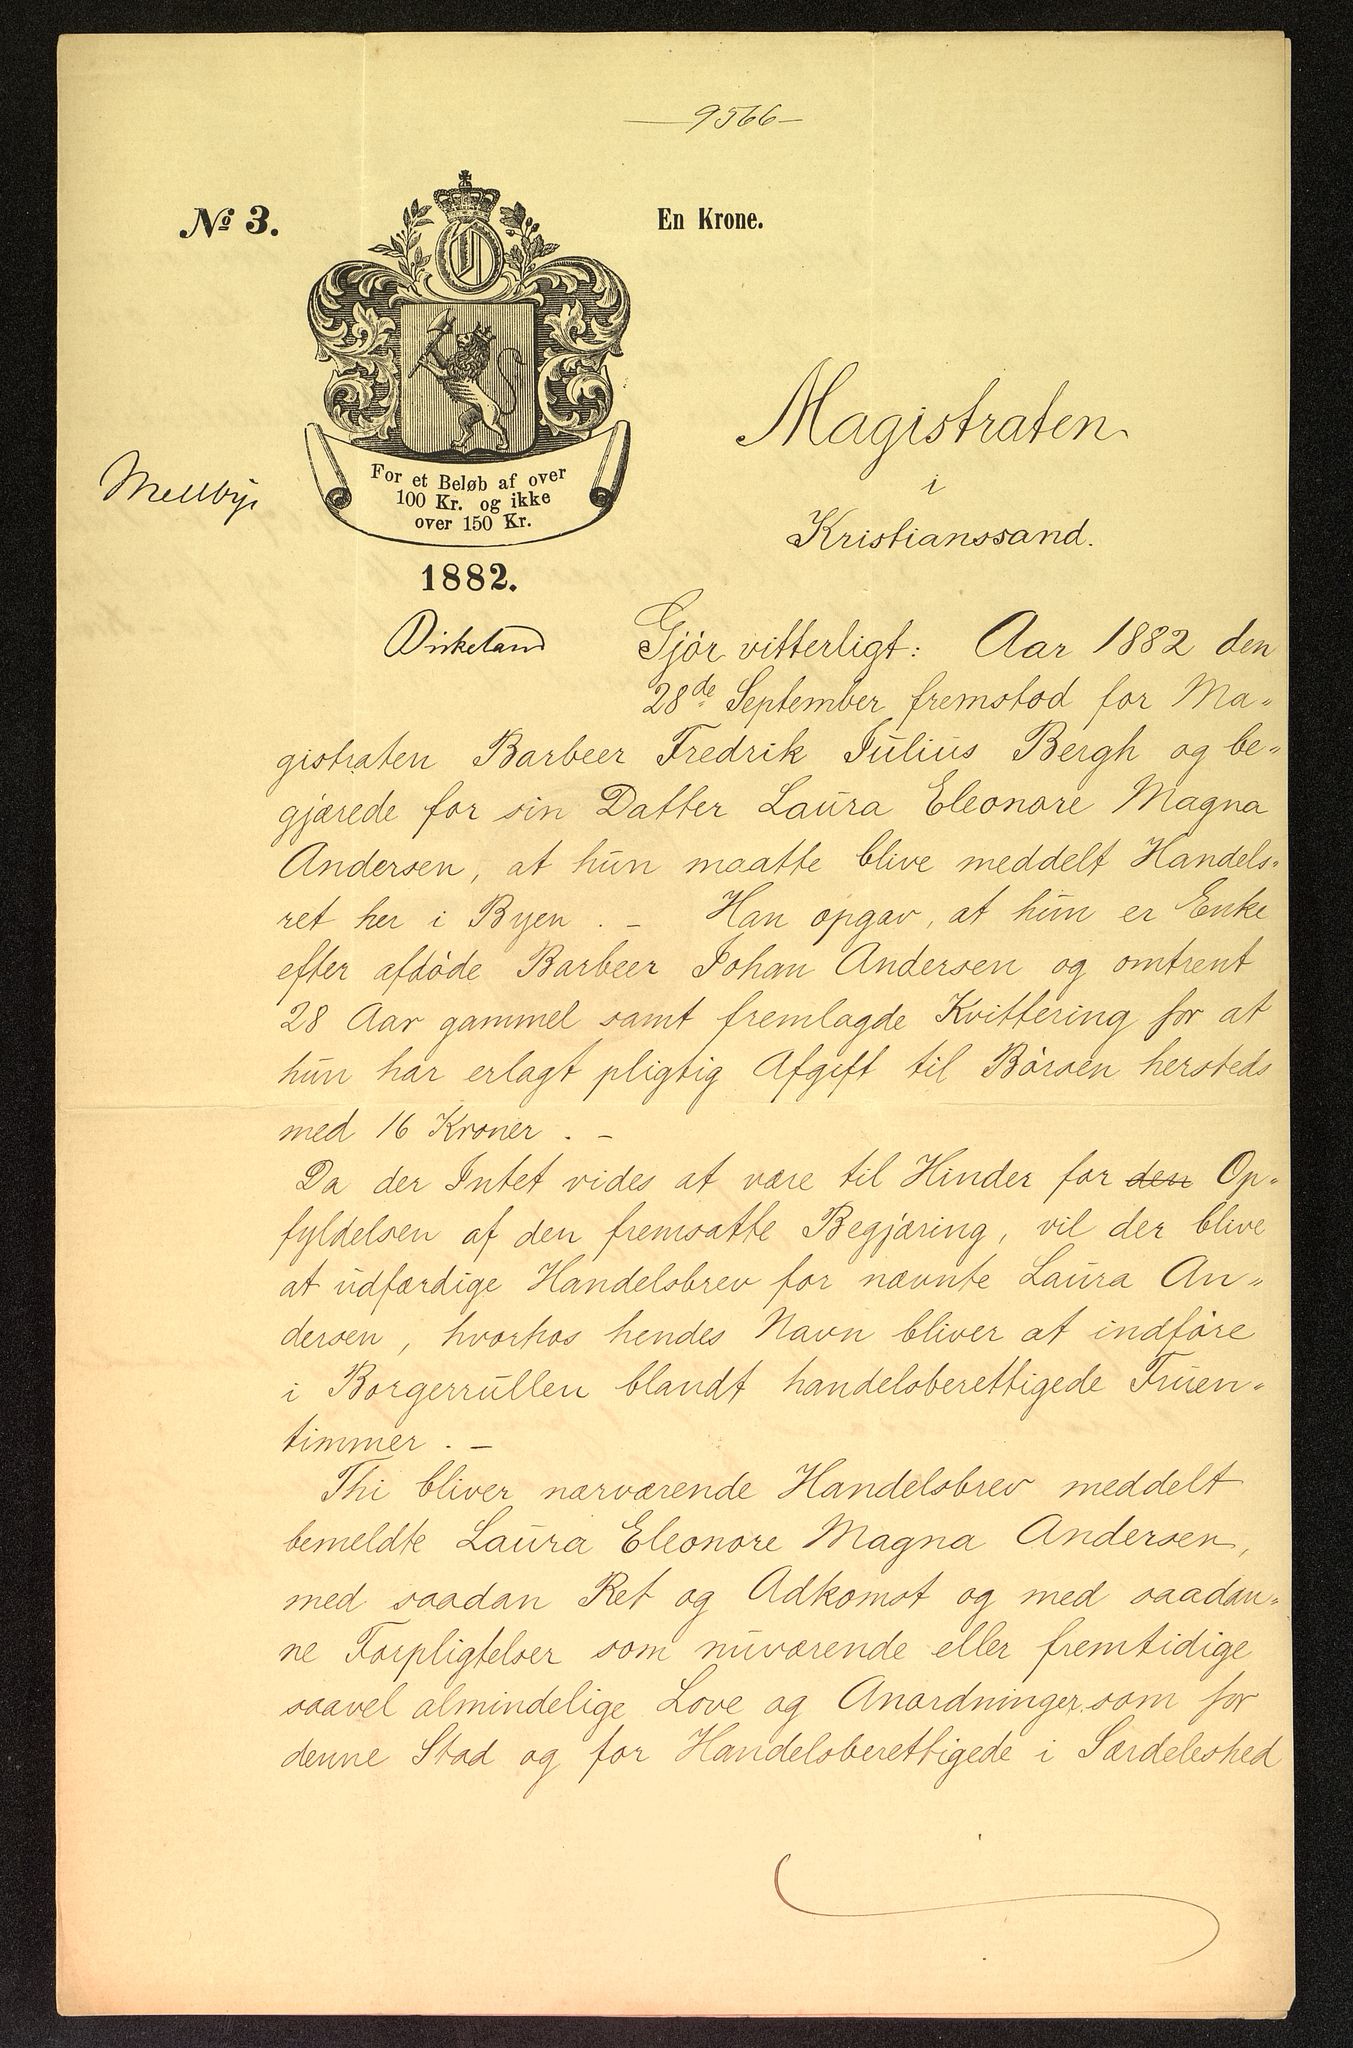 9566
No 3.
En Krone.
O
For et Beløb af over
100 Kr. og ikke
over 150 Kr.
1882.
Magistraten
i
Kristianssand.
Gjör vitterligt: Aar 1882 den
28de September fremstod for Ma-
gistraten Barbeer Fredrik Julius Bergh og be-
gjærede for sin Datter Laura Eleonore Magna
Andersen, at hun maatte blive meddelt Handels-
ret her i Byen. - Han opgav, at hun er Enke
efter afdöde Barbeer Johan Andersen og omtrent
28 Aar gammel samt fremlagde Kvittering for at
hun har erlagt pligtig Afgift til Börsen hersteds
med 16 Kroner. -
Da der Intet vides at være til Hinder for den Op-
fyldelsen af den fremsatte Begjæring, vil der blive
at udfærdige Handelsbrev for nævnte Laura An-
dersen, hvorhos hendes Navn bliver at indföre
i Borgerrullen blandt handelsberettigede Fruen-
timmer. -
Thi bliver nærværende Handelsbrev meddelt
bemeldte Laura Eleonore Magna Andersen,
med saadan Ret og Adkomst og med saadan-
ne Forpligtelser som nuværende eller fremtidige
saavel almindelige Love og Anordninger som for
denne Stad og for Handelsberettigede i Særdeleshed